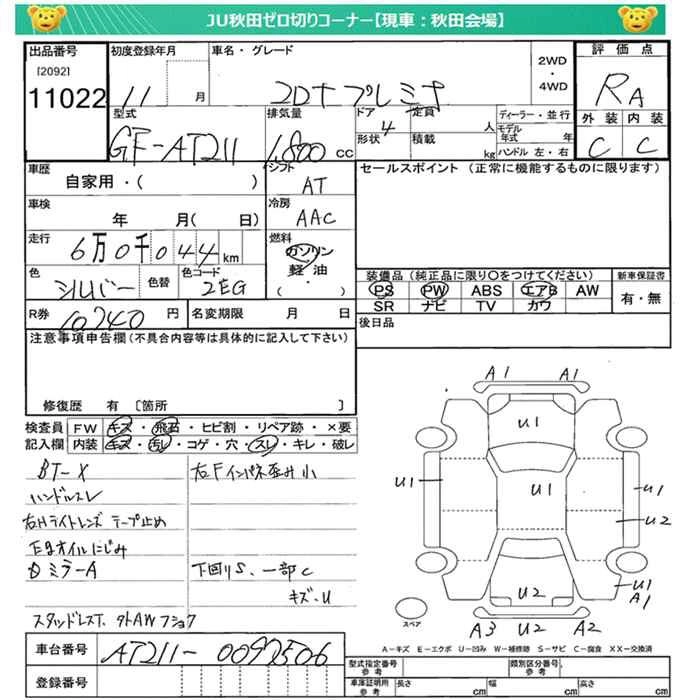 JU秋田ゼロ切りコーナー【現車：秋田会場】
出品番号
[2092]
11022
初度登録年月
11 月
車名・グレード
コロナ プレミオ
2WD
・
4WD
評価点
RA
外装 内装
C C
型式
GF-AT211
排気量
1,800 CC
ドア
4
形状
定員
人
積載
kg
ディーラー・並行
モデル年式 年
ハンドル 左・右
車歴
自家用・( )
シフト
AT
セールスポイント (正常に機能するものに限ります)
車検
年 月( 日)
冷房
AAC
走行
6万0千044km
燃料
ガソリン
軽油
( ・ )
色
シルバー
色替
色コード
2EG
装備品 (純正品に限り○をつけてください)
新車保証書
PS PW ABS エアB AW
SR ナビ TV カワ
有・無
R券
10740 円
名変期限 月 日
後日品
注意事項申告欄(不具合内容等は具体的に記入して下さい)
修復歴 有 [箇所 ]
検査員記入欄
FW キズ・飛石・ヒビ割・リペア跡・×要
内装 キズ・汚レ・コゲ・穴・スレ・キレ・破レ
BT-X
右Fインパネ歪み小
ハンドルスレ
右Hライトレンズ テープ止め
E/gオイルにじみ
ミラーA
下回りS、一部C
キズ・U
スタッドレスT、タトAWフショク
A1 A1
U1
U1
U1
U1
U2
U2
U1
A1
A3 U2 A2
スペア
A−キズ E−エクボ U−凹み W−補修跡 S−サビ C−腐食 XX−交換済
車台番号
AT211-0092506
登録番号
型式指定番号
参考
類別区分番号
参考
車庫証明用
参考
長さ cm
幅 cm
高さ cm